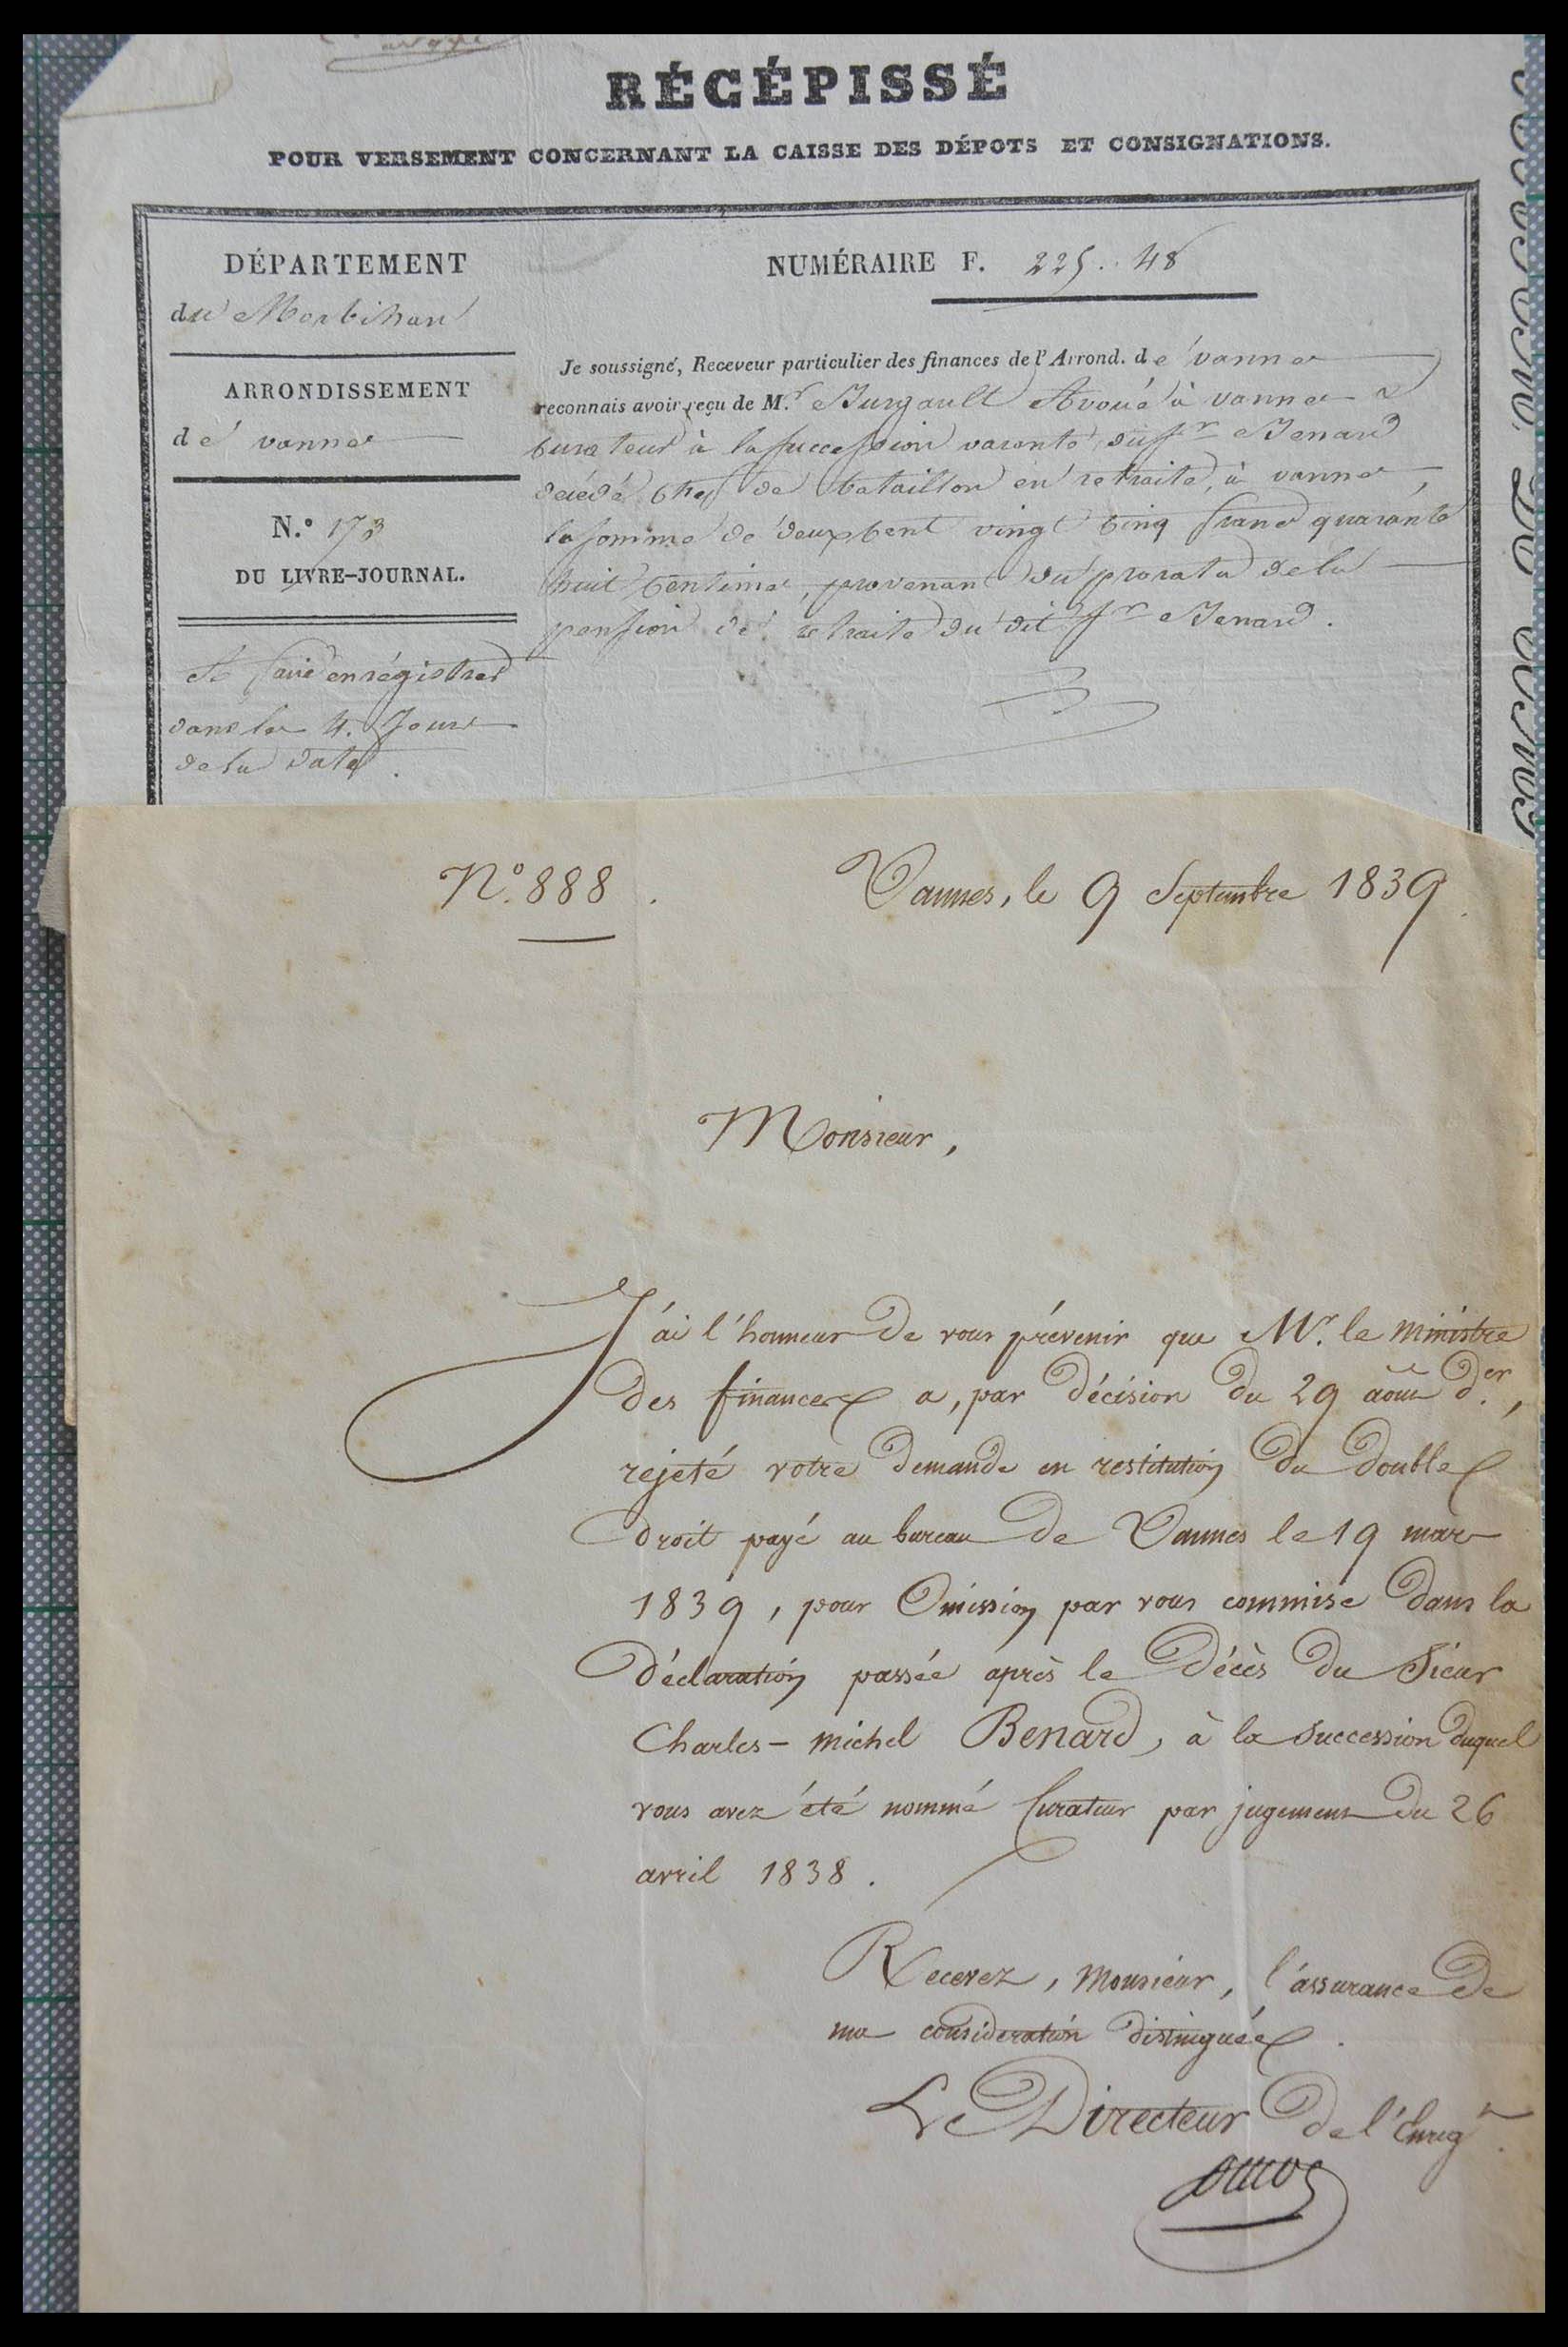 RÉCÉPISSÉ
POUR VERSEMENT CONCERNANT LA CAISSE DES DÉPOTS ET CONSIGNATIONS.
DÉPARTEMENT
du Morbihan
ARRONDISSEMENT
de vannes
N.º 173
DU LIVRE-JOURNAL.
A faire enrégistrer
dans les 4. Jours
de la date.
NUMÉRAIRE F. 225..48
Je soussigné, Receveur particulier des finances de l'Arrond. de vannes
reconnais avoir reçu de M.r Burgault Avoué à vannes
Curateur à la succession vacante du Sr Benard
décédé Chef de bataillon en retraite, à vannes,
la somme de deux Cent vingt Cinq francs quarante
huit Centimes, provenant du prorata de la
pension de retraite du dit Sr Benard.
Nº. 888.
Vannes, le 9 Septembre 1839.
Monsieur,
J'ai l'honneur de vous prévenir que Mr. le ministre
des finances a, par décision du 29 août d.er,
rejeté votre demande en restitution du double
droit payé au bureau de Vannes le 19 mars
1839, pour Omission par vous commise dans la
déclaration passée après le décès du Sieur
Charles-michel Benard, à la succession duquel
vous avez été nommé Curateur par jugement du 26
avril 1838.
Recevez, Monsieur, l'assurance de
ma considération distinguée.
Le Directeur de l'Enreg.t